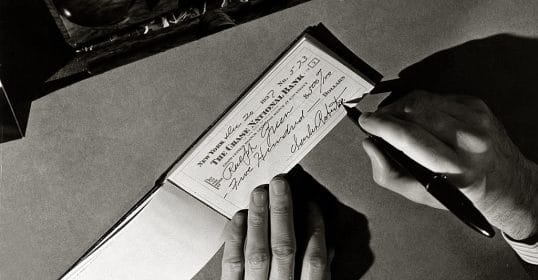 New York Dec 20 1937 No. 523
THE CHASE NATIONAL BANK
Ralph Green $500 00/100
Five Hundred DOLLARS